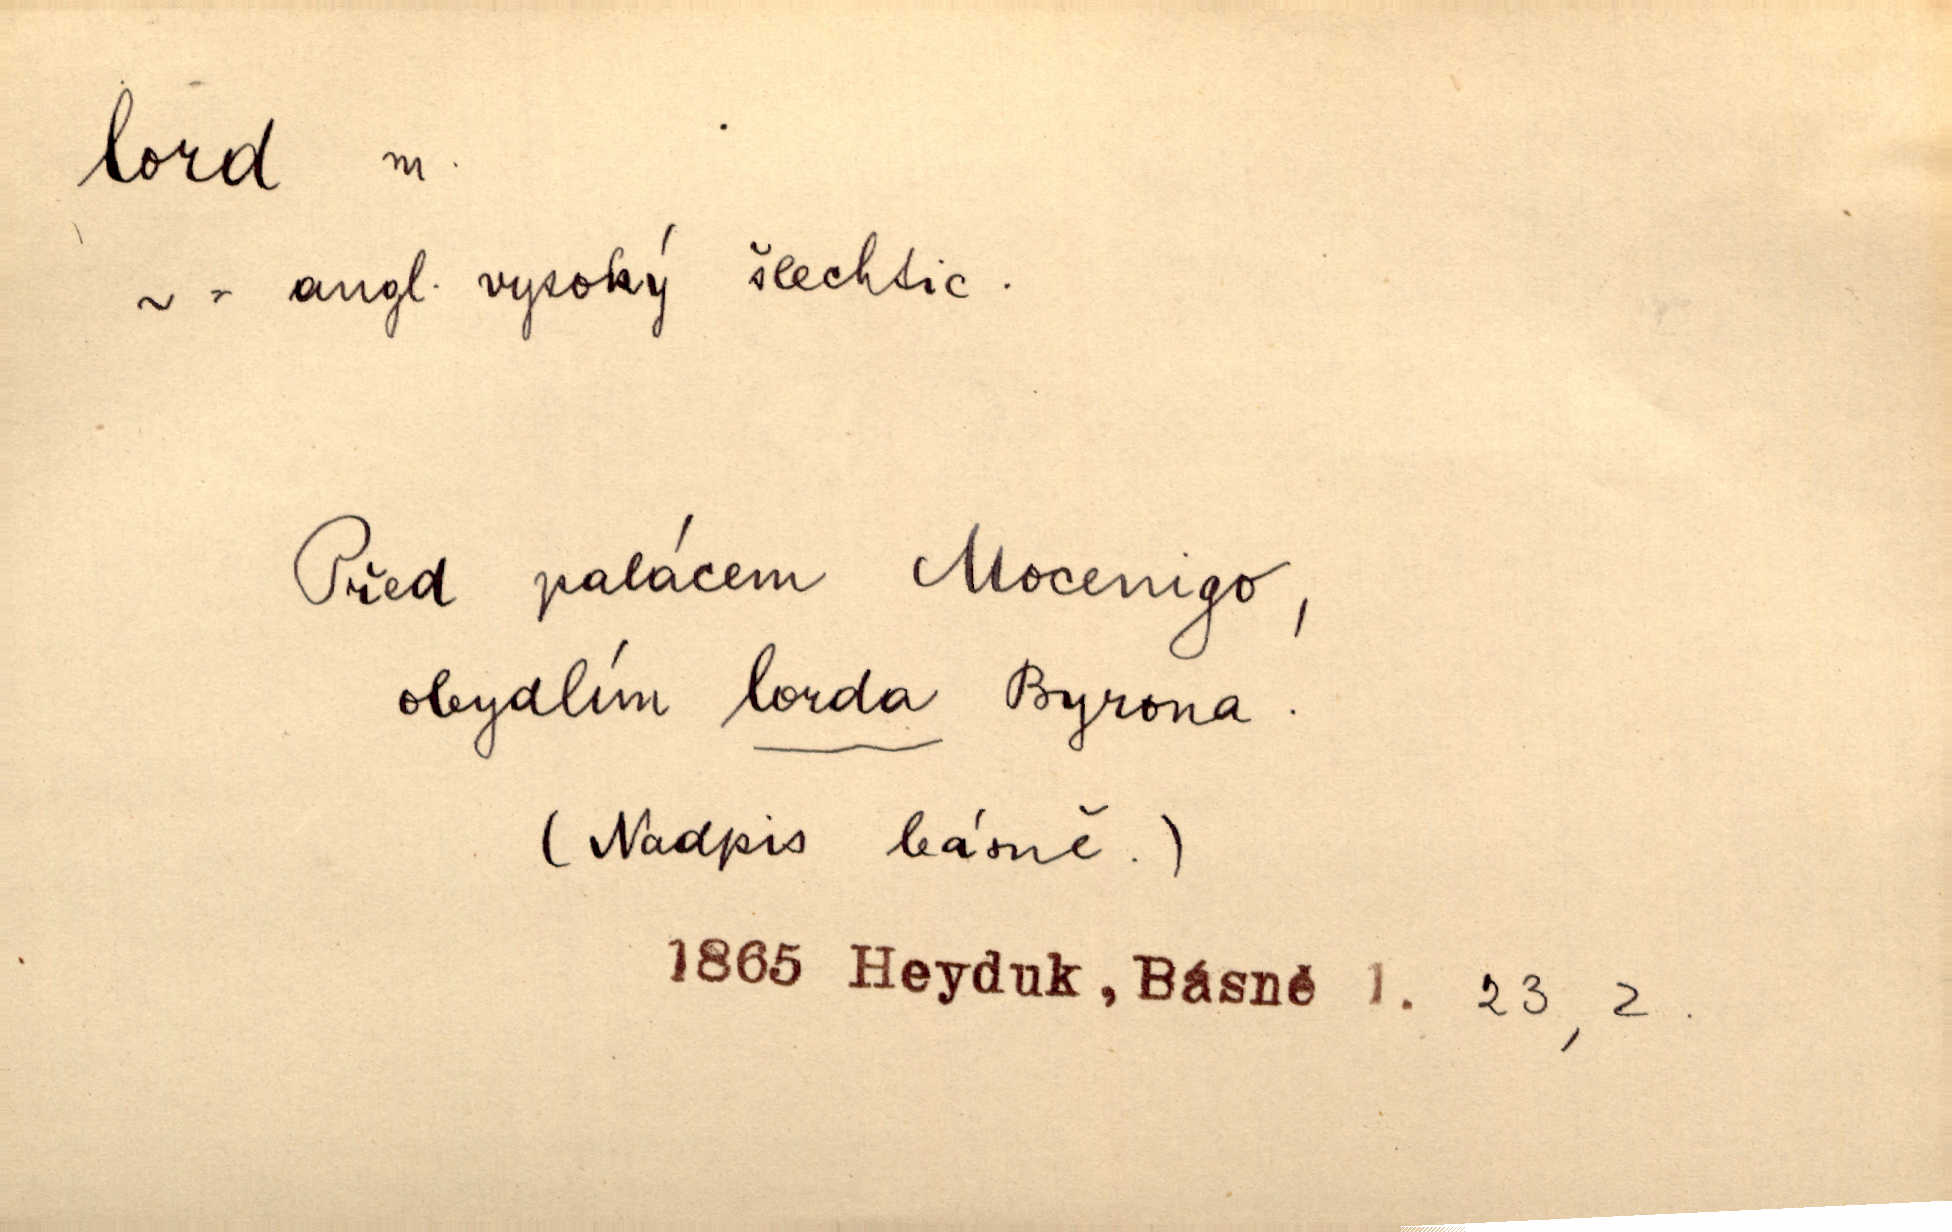 lord m.
~ = angl. vysoký šlechtic.
Před palácem Mocenigo,
obydlím lorda Byrona.
(Nadpis básně.)
1865 Heyduk, Básně 1. 23, 2.